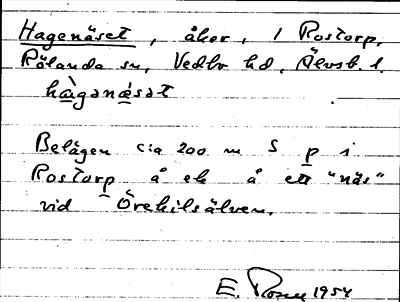 Hagenäset, åker, i Rostorp,
Rölanda sn, Vedbo hd, Älvsb. l.
hàgənæsət
Belägen cia 200 m S p i
Rostorp å ek å ett "näs"
vid Örekilsälven.
E. Rosen 1954